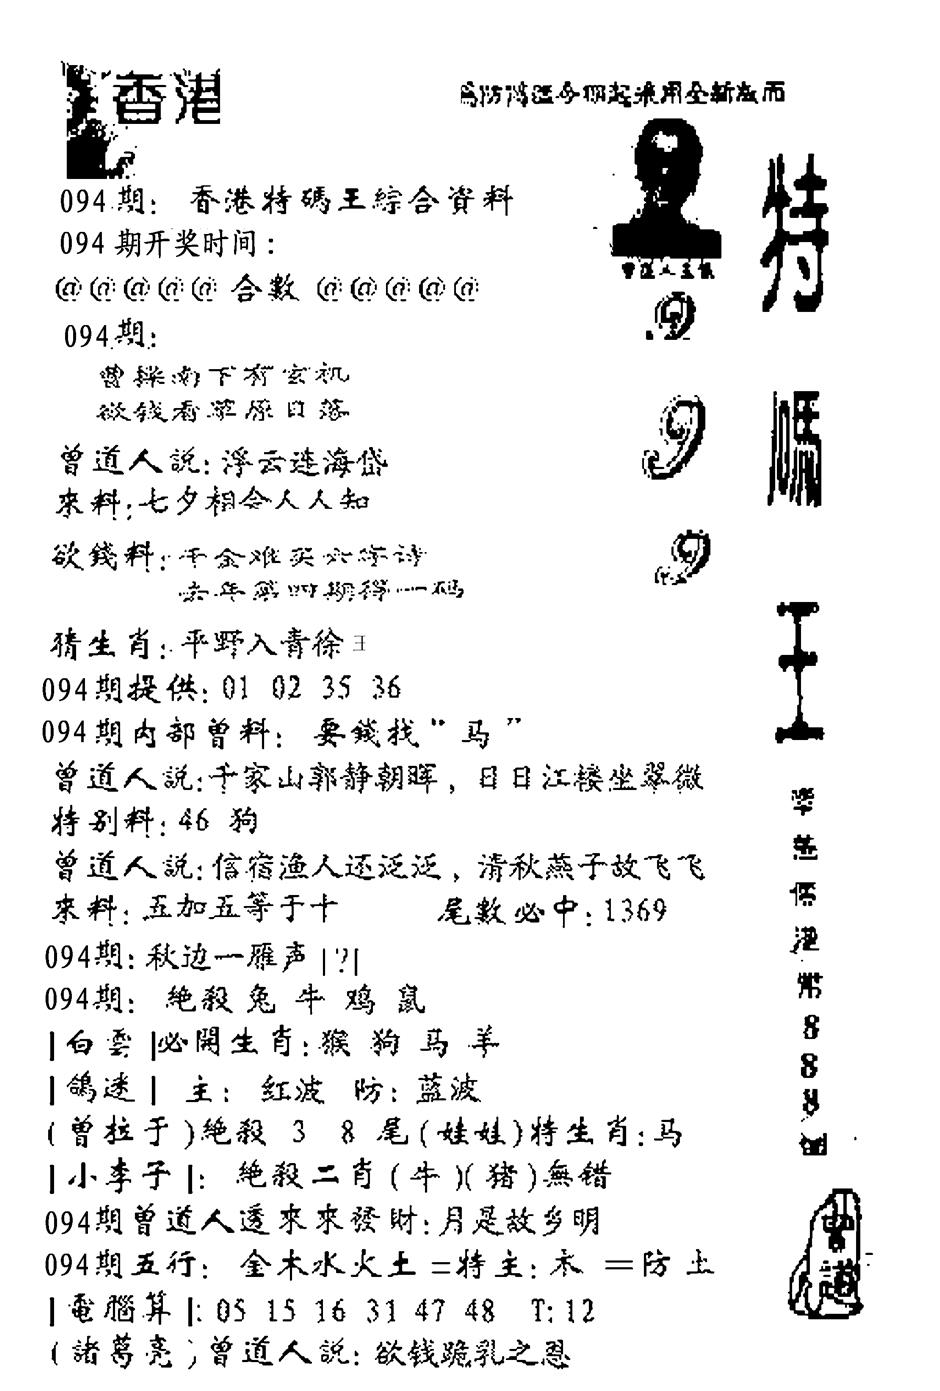 香港
為防鴻濫今期起采用全新版面
094期： 香港特碼王綜合資料
094期开奖时间：
@@@@@ 合數 @@@@@
094期:
曾道人玄機
下有玄机
欲钱看草原日落
曾道人説:浮云连海岱
來料:七夕相会人人知
欲錢料:千金难买六字诗
去年第四期得一码
猜生肖:平野入青徐王
094期提供:01 02 35 36
094期内部曾料: 要錢找“马”
曾道人説:千家山郭静朝晖，日日江楼坐翠微
特别料:46 狗
曾道人説:信宿渔人还泛泛，清秋燕子故飞飞
來料:五加五等于十 尾數必中:1369
094期:秋边一雁声|?|
094期: 絶殺兔牛鸡鼠
|白雲|必開生肖:猴狗马羊
|鴿迷| 主: 红波 防: 蓝波
(曾拉于)絶殺 3 8 尾(娃娃)特生肖:马
|小李子|: 絶殺二肖(牛)(猪)無错
094期曾道人透來來發財:月是故乡明
094期五行: 金木水火土=特主:木 =防土
|電腦算|:05 15 16 31 47 48 T:12
(諸葛亮)曾道人説:欲钱跪乳之恩
特
碼
王
888
曾道